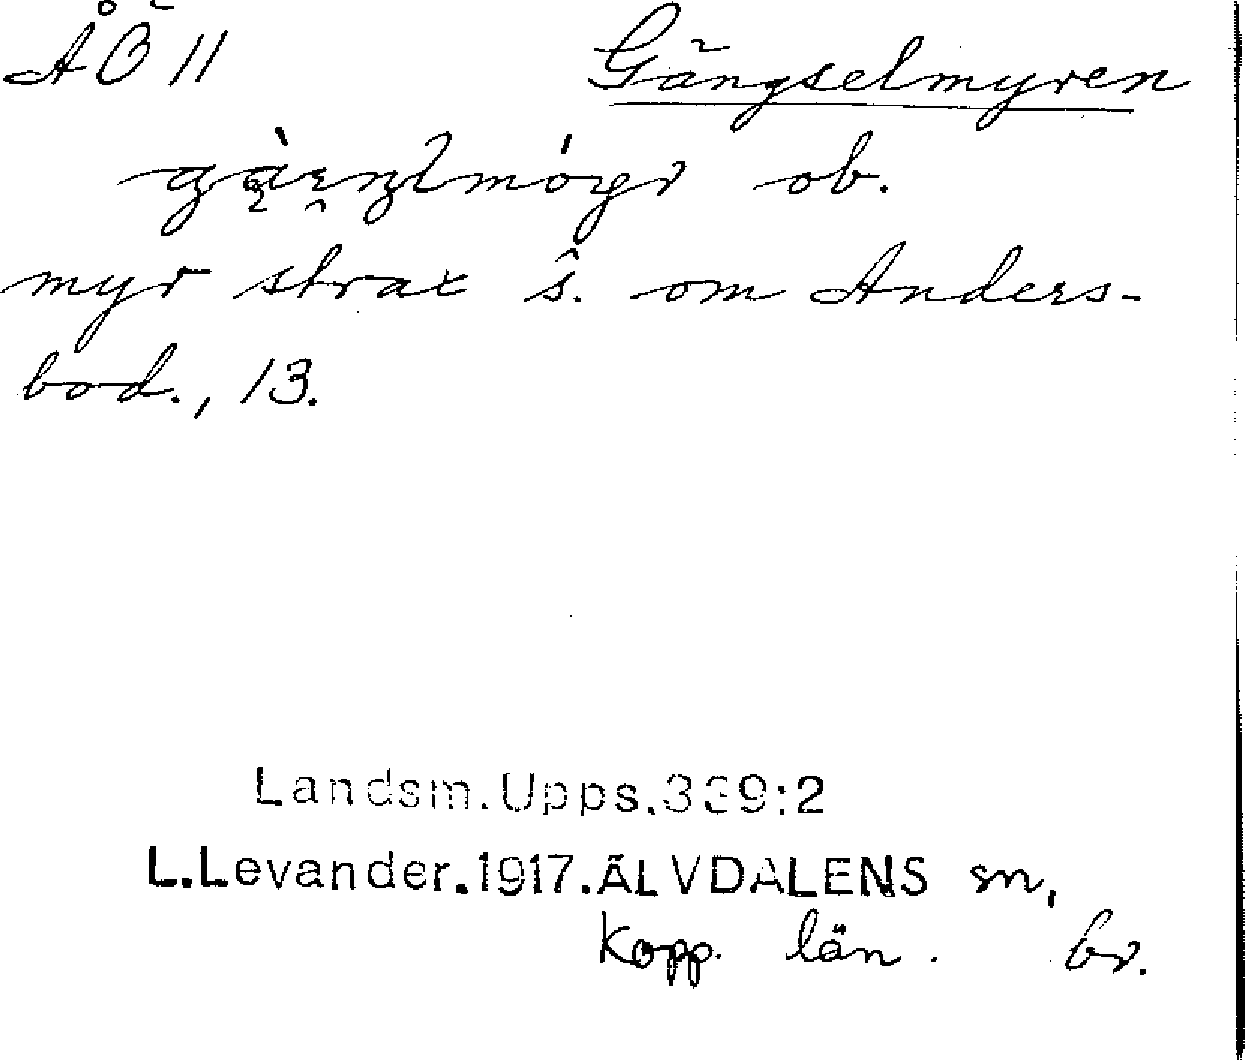 ÅÖ 11 Gängselmyren
ob.
myr strax s. om Anders-
bod., 13.
Landsm. Upps. 339:2
L. Levander. 1917. ÄLVDALENS sn,
Kopp. län. br.